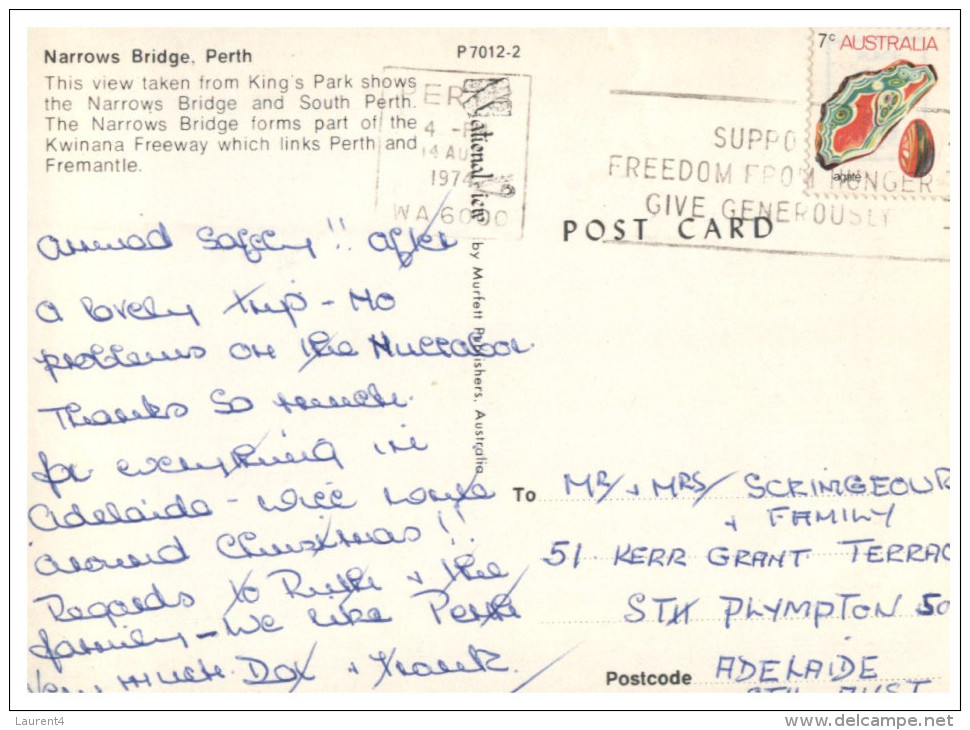 Narrows Bridge, Perth
This view taken from King's Park shows
the Narrows Bridge and South Perth.
The Narrows Bridge forms part of the
Kwinana Freeway which links Perth and
Fremantle.
P7012-2
7c AUSTRALIA
agate
PER
4 -P
14 AU
1974
WA 6000
SUPPO
FREEDOM FROM HUNGER
GIVE GENEROUSLY
National View
by Murfett Publishers, Australia
POST CARD
arrived safely!! after
a lovely trip - no
problems on the Nullabor.
Thanks so much
for everything in
Adelaide - will write
around Christmas!!
Regards to Ruth + the
family - We like Perth
very much. Dot + Frank.
To MR + MRS SCRIMGEOUR
+ FAMILY
51 KERR GRANT TERRAC
STH PLYMPTON 50
Postcode ADELAIDE
STH AUST
Laurent4
www.delcampe.net